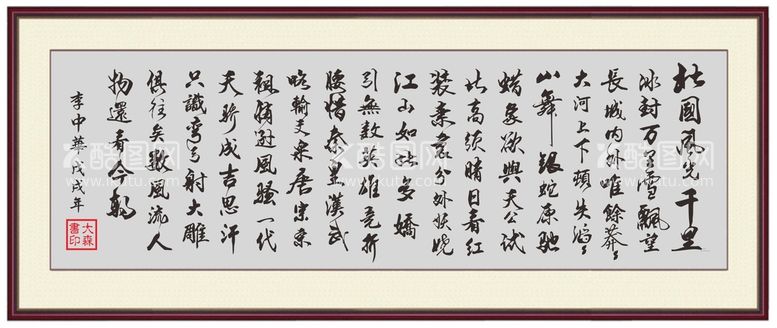 北國風光千里
冰封万里雪飄望
長城内外唯餘莽々
大河上下頓失滔々
山舞銀蛇原馳
蜡象欲與天公試
比高須晴日看紅
装素裹分外妖嬈
江山如此多嬌
引無数英雄竞折
腰惜秦皇漢武
略輸文采唐宗宋
祖稍遜風騷一代
天骄成吉思汗
只識弯弓射大雕
俱往矣数風流人
物還看今朝
李中華戊戌年
大森
書印